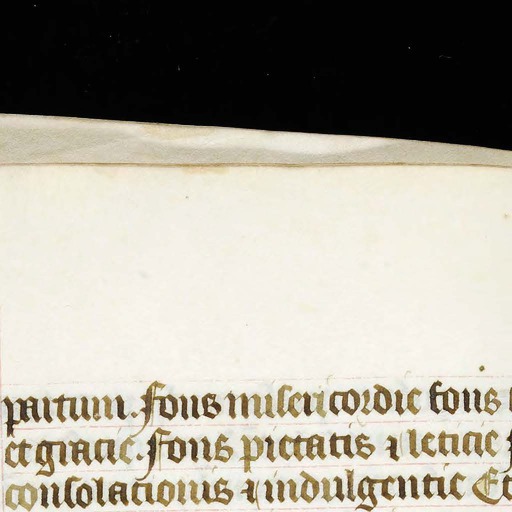 partum. Fons misericordie fons
et gracie. Fons pietatis ⁊ leticie
consolationis ⁊ indulgentie Et